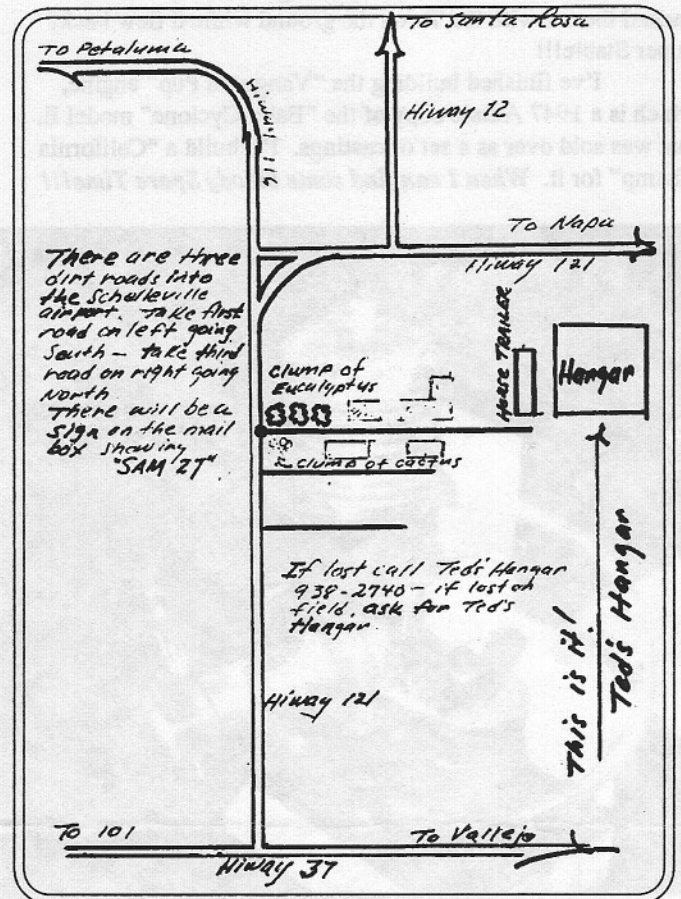 To Petaluma
To Santa Rosa
Hiway 116
Hiway 12
To Napa
Hiway 121
There are three
dirt roads into
the Schelleville
airport. Take first
road on left going
South – take third
road on right going
North
There will be a
sign on the mail
box showing
"SAM 27"
Clump of
Eucalyptus
HORSE TRAILER
Hangar
Clump of cactus
If lost call Ted's Hangar
938-2740 – if lost on
field, ask for Ted's
Hangar
This is it!
Ted's Hangar
Hiway 121
To 101
To Vallejo
Hiway 37